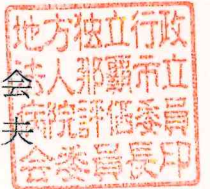 会
夫
地方独立行政
法人那覇市立
病院評価委員
会委員長印